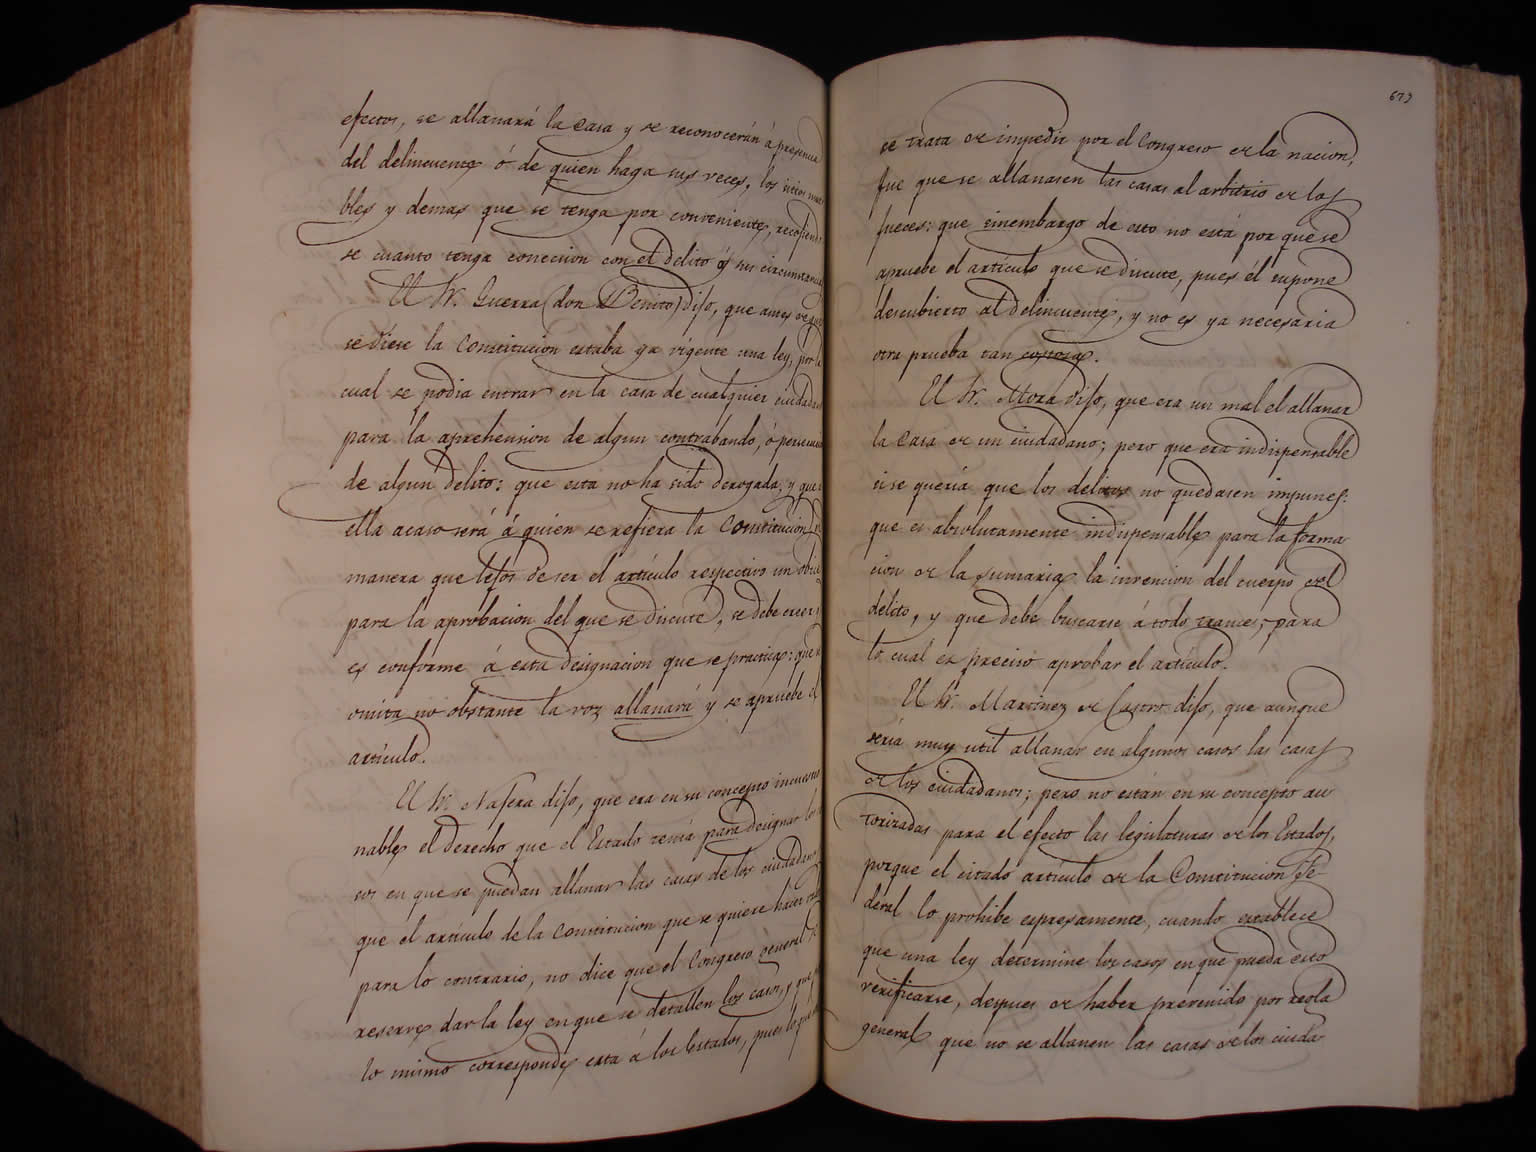 efectos, se allanará la casa y se reconocerán á presencia
del delincuente ó de quien haga sus veces, los sitios mue
bles y demas que se tenga por conveniente, recogiendo
se cuanto tenga coneccion con el delito ó sus circunstancias
El Sr. Guerra (don Benito) dijo, que antes de que
se diese la Constitucion estaba ya vigente una ley, por la
cual se podia entrar en la casa de cualquier ciudadano
para la aprehension de algun contrabando, ó persecucion
de algun delito: que esta no ha sido derogada, y que
ella acaso será á quien se refiera la Constitucion, de
manera que lejos de ser el artículo respectivo un
para la aprobacion del que se discute, se debe creer
es conforme á esta designacion que se practica: que
omita no obstante la voz allanará y se apruebe el
artículo.
El Sr. Najera dijo, que era en su concepto incuestio
nable el derecho que el Estado tenia para designar los ca
sos en que se puedan allanar las casas de los ciudadanos,
que el artículo de la Constitucion que se quiere hacer
para lo contrario, no dice que el Congreso general se
reserve dar la ley en que se detallen los casos, y que por
lo mismo corresponde esta á los Estados, pues lo que
673
se trata de impedir por el Congreso de la nacion,
fue que se allanasen las casas al arbitrio de los
jueces: que sinembargo de esto no está por que se
apruebe el artículo que se discute, pues él supone
descubierto al delincuente, y no es ya necesaria
otra prueba tan costosa.
El Sr. Mora dijo, que era un mal el allanar
la casa de un ciudadano; pero que era indispensable
si se queria que los delitos no quedasen impunes:
que es absolutamente indispensable para la forma
cion de la sumaria la invencion del cuerpo del
delito, y que debe buscarse á todo trance, para
lo cual es preciso aprobar el artículo.
El Sr. Martinez de Castro dijo, que aunque
sería muy util allanar en algunos casos las casas
de los ciudadanos; pero no están en su concepto au
torizadas para el efecto las legislaturas de los Estados,
porque el citado artículo de la Constitucion Fe-
deral lo prohibe espresamente, cuando establece
que una ley determine los casos en que pueda esto
verificarse, despues de haber prevenido por regla
general que no se allanen las casas de los ciuda